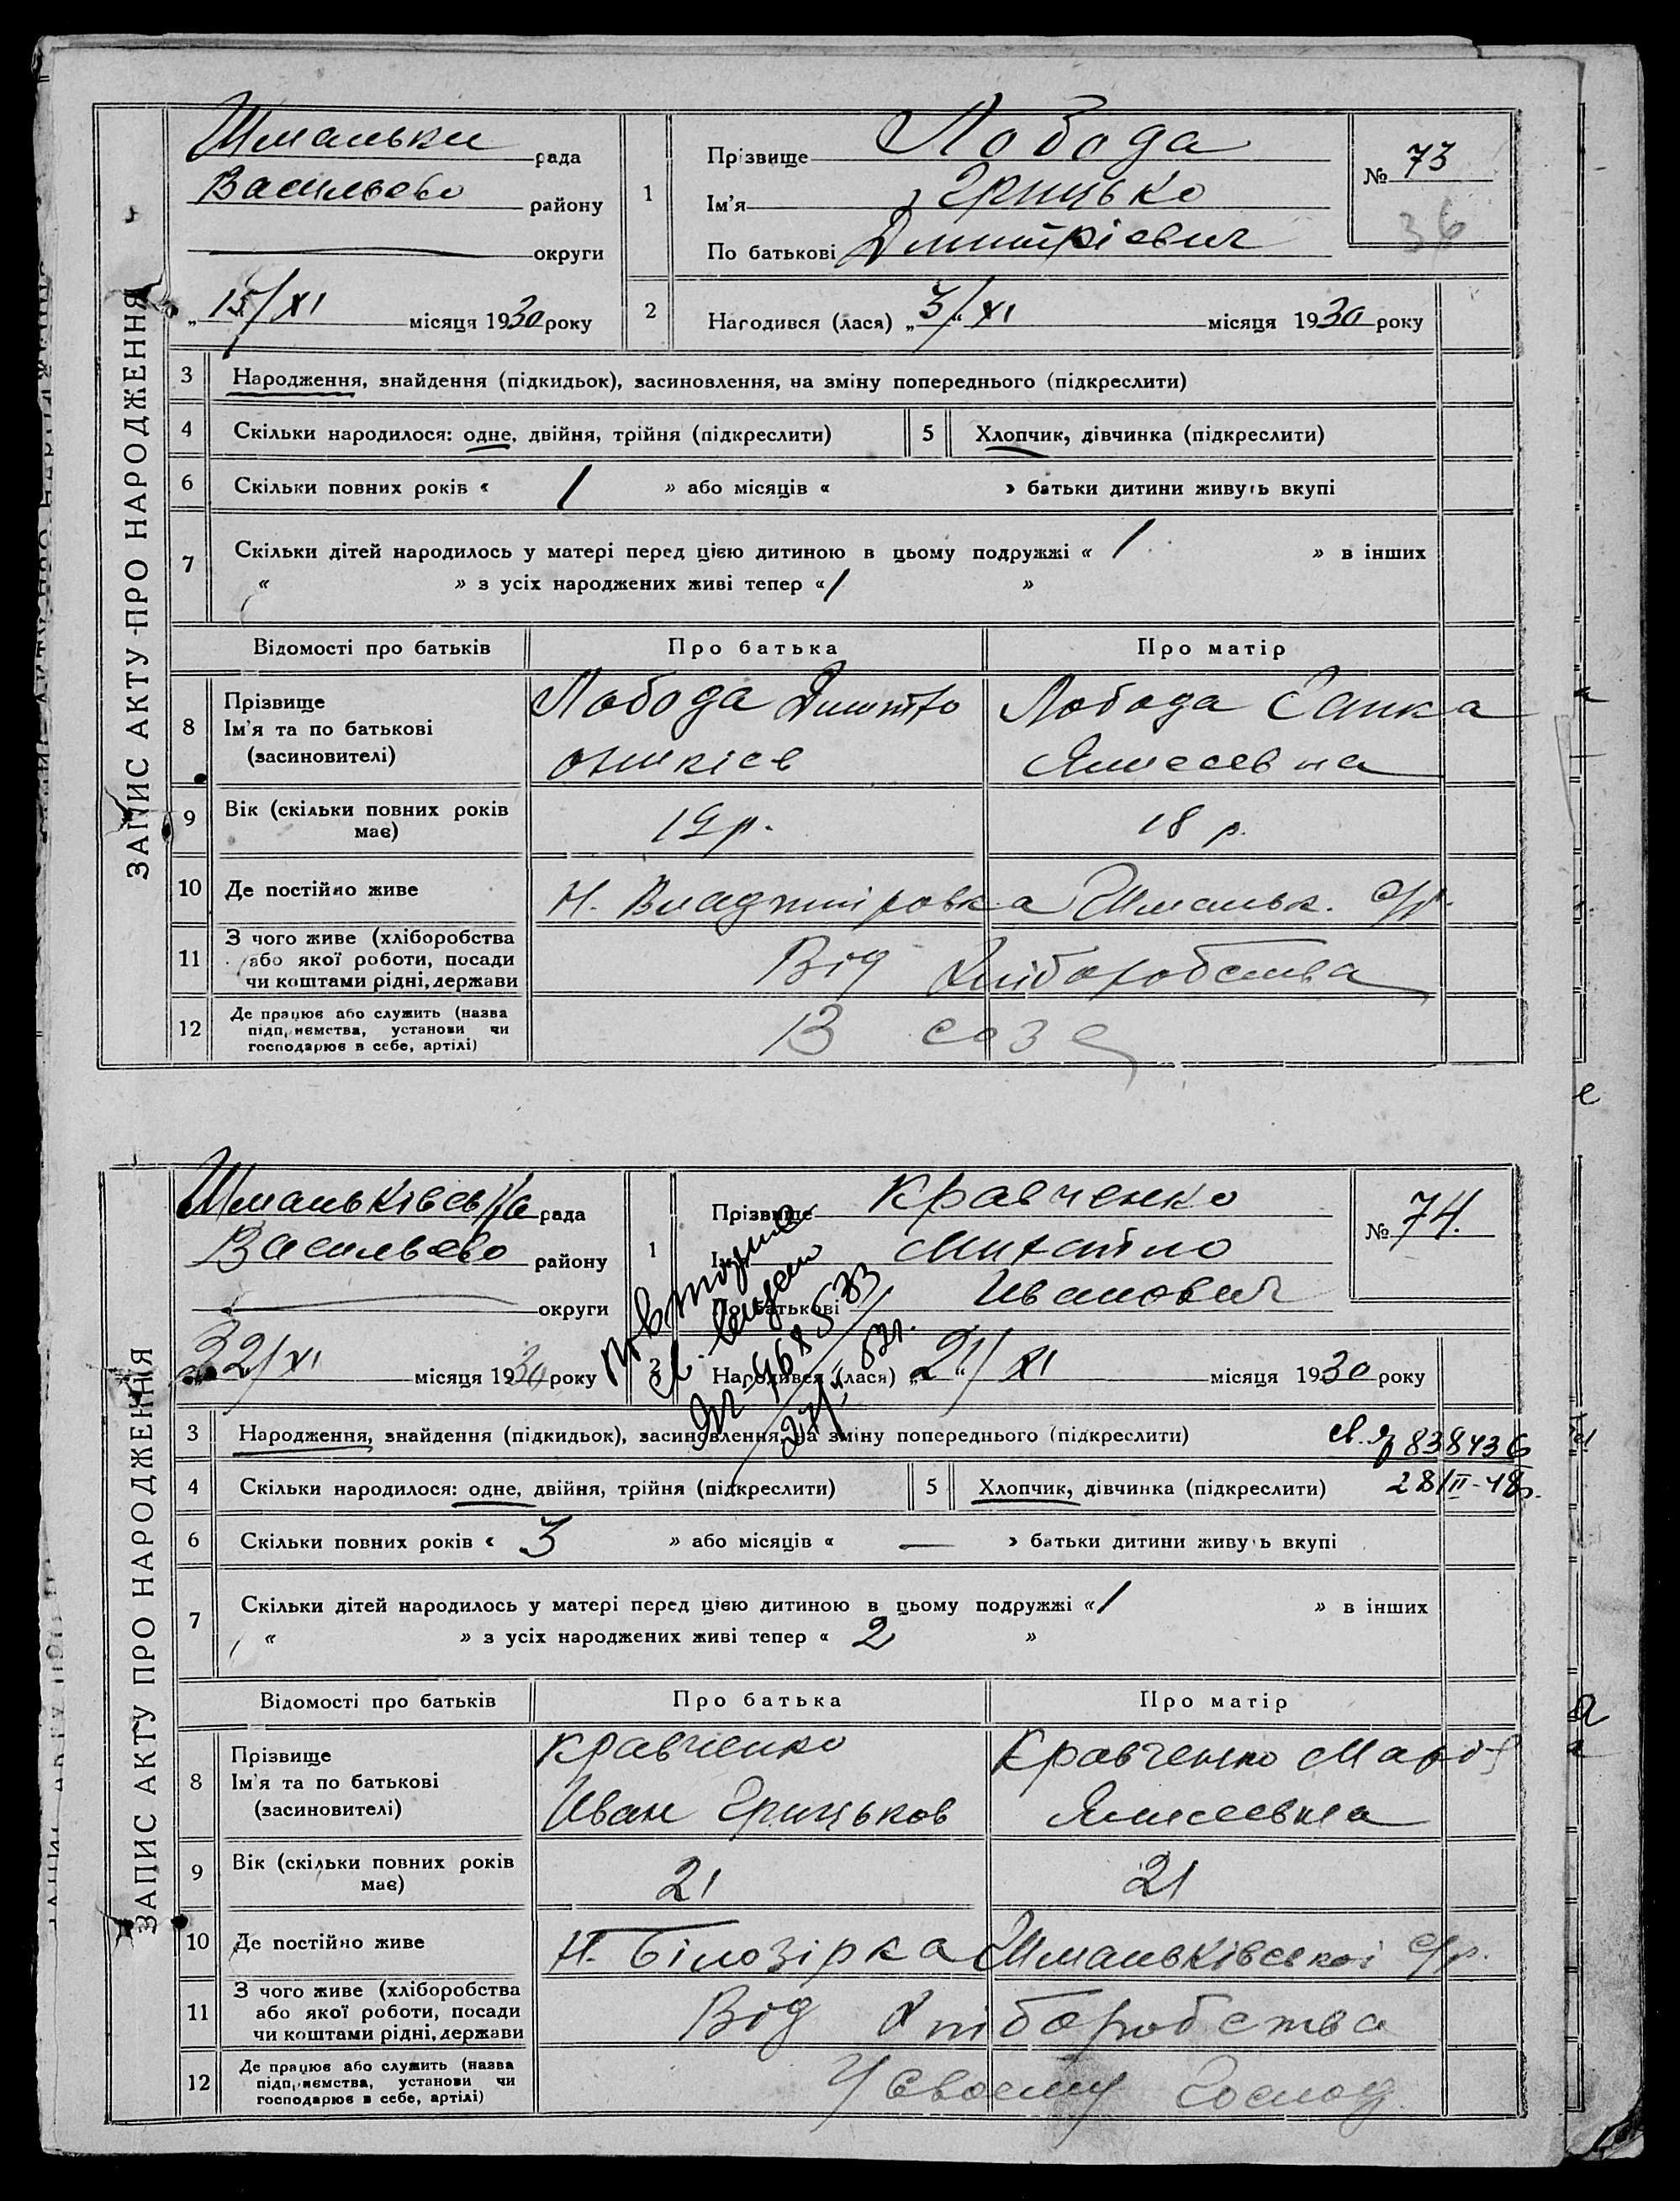 ЗАПИС АКТУ ПРО НАРОДЖЕННЯ
Шманьки рада
Васильево району
округи
15/XI місяця 1930 року
1 Прізвище Лобода
Ім'я Грицько
По батькові Дмитрієвич
№ 73
36
2 Народився (лася) „3/“ XI місяця 1930 року
3 Народження, знайдення (підкидьок), засиновлення, на зміну попереднього (підкреслити)
4 Скільки народилося: одне, двійня, трійня (підкреслити) 5 Хлопчик, дівчинка (підкреслити)
6 Скільки повних років « 1 » або місяців « » батьки дитини живуть вкупі
7 Скільки дітей народилось у матері перед цією дитиною в цьому подружжі « 1 » в інших
« » з усіх народжених живі тепер « 1 »
Відомості про батьків Про батька Про матір
8 Прізвище
Ім'я та по батькові
(засиновителі)
Лобода Дмитро
Лобода Санка
Ялисеевна
9 Вік (скільки повних років має) 19 р. 18 р.
10 Де постійно живе Н. Владимировка Шманьк. с/р.
11 З чого живе (хліборобства
або якої роботи, посади
чи коштами рідні, держави
Від хліборобства
12 Де працює або служить (назва
підприємства, установи чи
господарює в себе, артілі)
В созе
ЗАПИС АКТУ ПРО НАРОДЖЕННЯ
Шманьківська рада
Васильево району
округи
22/XI місяця 1930 року
1 Прізвище Кравченко
Ім'я Михайло
По батькові Иванович
№ 74.
2 Народився (лася) „21/“ XI місяця 1930 року
повторно
3 Народження, знайдення (підкидьок), засиновлення, на зміну попереднього (підкреслити)
св. 838436
28/II-48г.
4 Скільки народилося: одне, двійня, трійня (підкреслити) 5 Хлопчик, дівчинка (підкреслити)
6 Скільки повних років « 3 » або місяців « — » батьки дитини живуть вкупі
7 Скільки дітей народилось у матері перед цією дитиною в цьому подружжі « 1 » в інших
« » з усіх народжених живі тепер « 2 »
Відомості про батьків Про батька Про матір
8 Прізвище
Ім'я та по батькові
(засиновителі)
Кравченко
Иван Грицьков
Кравченко Марія
Ялисеевна
9 Вік (скільки повних років має) 21 21
10 Де постійно живе Н. Білозірка Шманьківської с/р.
11 З чого живе (хліборобства
або якої роботи, посади
чи коштами рідні, держави
Від хліборобства
12 Де працює або служить (назва
підприємства, установи чи
господарює в себе, артілі)
У своєму господ.